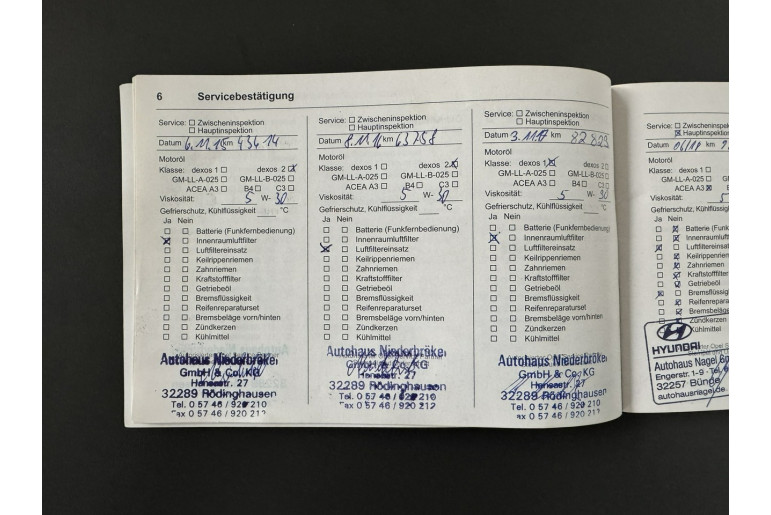 6 Servicebestätigung
Service: ☐ Zwischeninspektion
☐ Hauptinspektion
Datum 6.11.15 km 43614
Motoröl
Klasse: dexos 1 ☐ dexos 2 ☒
GM-LL-A-025 ☐ GM-LL-B-025 ☐
ACEA A3 ☐ B4 ☐ C3 ☐
Viskosität: 5 W- 30
Gefrierschutz, Kühlflüssigkeit °C
Ja Nein
☐ ☐ Batterie (Funkfernbedienung)
☒ ☐ Innenraumluftfilter
☐ ☐ Luftfiltereinsatz
☐ ☐ Keilrippenriemen
☐ ☐ Zahnriemen
☐ ☐ Kraftstofffilter
☐ ☐ Getriebeöl
☐ ☐ Bremsflüssigkeit
☐ ☐ Reifenreparaturset
☐ ☐ Bremsbeläge vorn/hinten
☐ ☐ Zündkerzen
☐ ☐ Kühlmittel
Autohaus Niederbröke
GmbH & Co. KG
Hansastr. 27
32289 Rödinghausen
Tel. 0 57 46 / 920 210
Fax 0 57 46 / 920 212
Service: ☐ Zwischeninspektion
☐ Hauptinspektion
Datum 8.11.16 km 63758
Motoröl
Klasse: dexos 1 ☐ dexos 2 ☒
GM-LL-A-025 ☐ GM-LL-B-025 ☐
ACEA A3 ☐ B4 ☐ C3 ☐
Viskosität: 5 W- 30
Gefrierschutz, Kühlflüssigkeit °C
Ja Nein
☐ ☐ Batterie (Funkfernbedienung)
☐ ☐ Innenraumluftfilter
☒ ☐ Luftfiltereinsatz
☐ ☐ Keilrippenriemen
☐ ☐ Zahnriemen
☐ ☐ Kraftstofffilter
☐ ☐ Getriebeöl
☐ ☐ Bremsflüssigkeit
☐ ☐ Reifenreparaturset
☐ ☐ Bremsbeläge vorn/hinten
☐ ☐ Zündkerzen
☐ ☐ Kühlmittel
Autohaus Niederbröke
GmbH & Co. KG
Hansastr. 27
32289 Rödinghausen
Tel. 0 57 46 / 920 210
Fax 0 57 46 / 920 212
Service: ☐ Zwischeninspektion
☐ Hauptinspektion
Datum 3.11.17 km 82829
Motoröl
Klasse: dexos 1 ☒ dexos 2 ☐
GM-LL-A-025 ☐ GM-LL-B-025 ☐
ACEA A3 ☐ B4 ☐ C3 ☐
Viskosität: 5 W- 30
Gefrierschutz, Kühlflüssigkeit °C
Ja Nein
☐ ☐ Batterie (Funkfernbedienung)
☒ ☐ Innenraumluftfilter
☐ ☐ Luftfiltereinsatz
☐ ☐ Keilrippenriemen
☐ ☐ Zahnriemen
☐ ☐ Kraftstofffilter
☐ ☐ Getriebeöl
☐ ☐ Bremsflüssigkeit
☐ ☐ Reifenreparaturset
☐ ☐ Bremsbeläge vorn/hinten
☐ ☐ Zündkerzen
☐ ☐ Kühlmittel
Autohaus Niederbröke
GmbH & Co. KG
Hansastr. 27
32289 Rödinghausen
Tel. 0 57 46 / 920 210
Fax 0 57 46 / 920 212
Service: ☐ Zwischeninspektion
☒ Hauptinspektion
Datum km
Motoröl
Klasse: dexos 1 ☐
GM-LL-A-025 ☐
ACEA A3 ☒
Viskosität:
Gefrierschutz, Kühlflüssigk
Ja Nein
☐ ☒ Batterie (Funkfernb
☐ ☒ Innenraumluftfilter
☒ ☐ Luftfiltereinsatz
☐ ☒ Keilrippenriemen
☐ ☒ Zahnriemen
☐ ☒ Kraftstofffilter
☐ ☒ Getriebeöl
☒ ☐ Bremsflüssigkeit
☐ ☒ Reifenreparaturset
☐ ☒ Bremsbeläge vorn
Zündkerzen
Kühlmittel
HYUNDAI
Autohaus Nagel
Engerstr. 1-9 · Tel.
32257 Bünde
autohausnagel.de